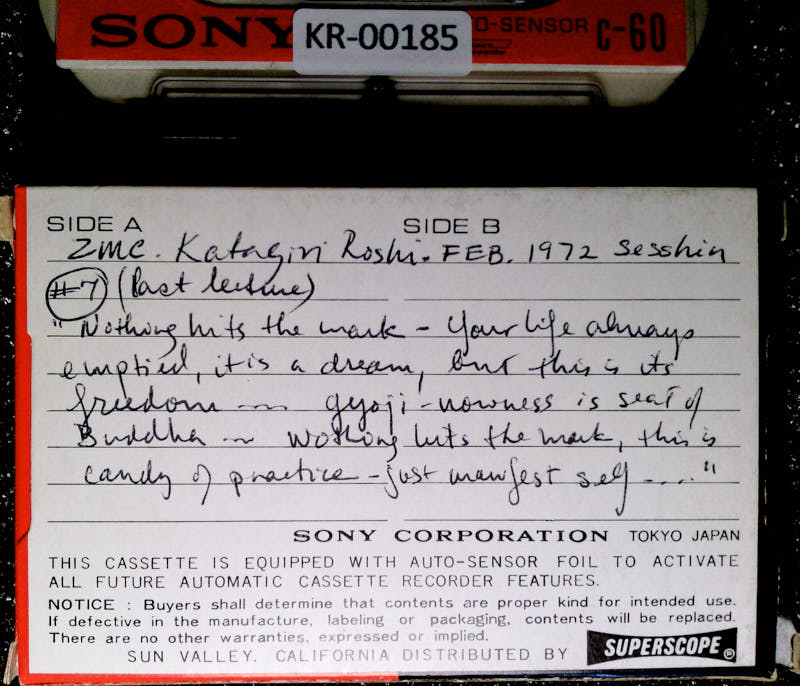 SONY KR-00185 O-SENSOR C-60
SIDE A SIDE B
ZMC. Katagiri Roshi. FEB. 1972 Sesshin
#7 (last lecture)
"Nothing hits the mark - Your life always
emptied, it is a dream, but this is its
freedom ~ gyoji - nowness is seat of
Buddha ~ Nothing hits the mark, this is
candy of practice - just manifest self ...."
SONY CORPORATION TOKYO JAPAN
THIS CASSETTE IS EQUIPPED WITH AUTO-SENSOR FOIL TO ACTIVATE
ALL FUTURE AUTOMATIC CASSETTE RECORDER FEATURES.
NOTICE : Buyers shall determine that contents are proper kind for intended use.
If defective in the manufacture, labeling or packaging, contents will be replaced.
There are no other warranties, expressed or implied.
SUN VALLEY. CALIFORNIA DISTRIBUTED BY SUPERSCOPE®